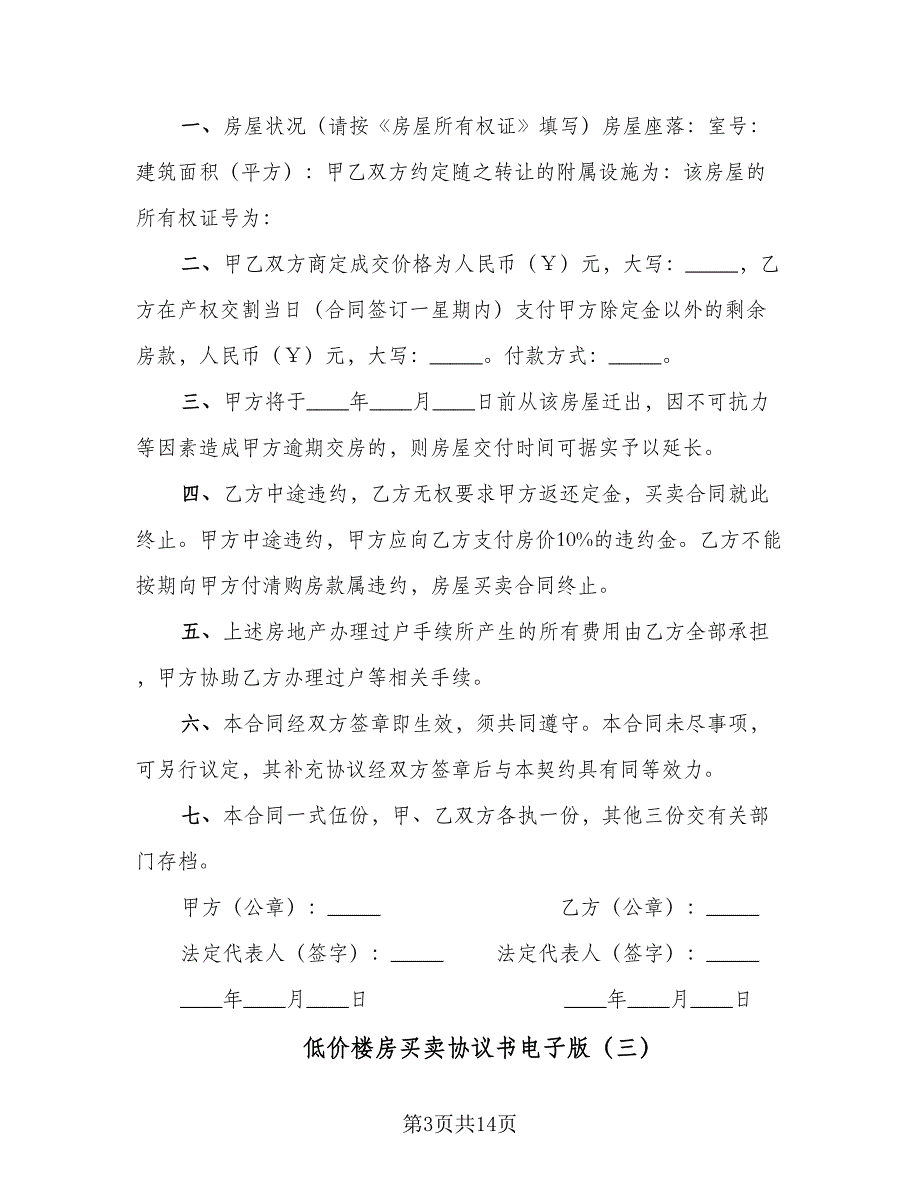 一、房屋状况（请按《房屋所有权证》填写）房屋座落：室号：
建筑面积（平方）：甲乙双方约定随之转让的附属设施为：该房屋的
所有权证号为：
二、甲乙双方商定成交价格为人民币（￥）元，大写：_____，乙
方在产权交割当日（合同签订一星期内）支付甲方除定金以外的剩余
房款，人民币（￥）元，大写：_____。付款方式：_____。
三、甲方将于____年____月____日前从该房屋迁出，因不可抗力
等因素造成甲方逾期交房的，则房屋交付时间可据实予以延长。
四、乙方中途违约，乙方无权要求甲方返还定金，买卖合同就此
终止。甲方中途违约，甲方应向乙方支付房价10%的违约金。乙方不能
按期向甲方付清购房款属违约，房屋买卖合同终止。
五、上述房地产办理过户手续所产生的所有费用由乙方全部承担
，甲方协助乙方办理过户等相关手续。
六、本合同经双方签章即生效，须共同遵守。本合同未尽事项，
可另行议定，其补充协议经双方签章后与本契约具有同等效力。
七、本合同一式伍份，甲、乙双方各执一份，其他三份交有关部
门存档。
甲方（公章）：_____ 乙方（公章）：_____
法定代表人（签字）：_____ 法定代表人（签字）：_____
____年____月____日 ____年____月____日
低价楼房买卖协议书电子版（三）
第3页共14页